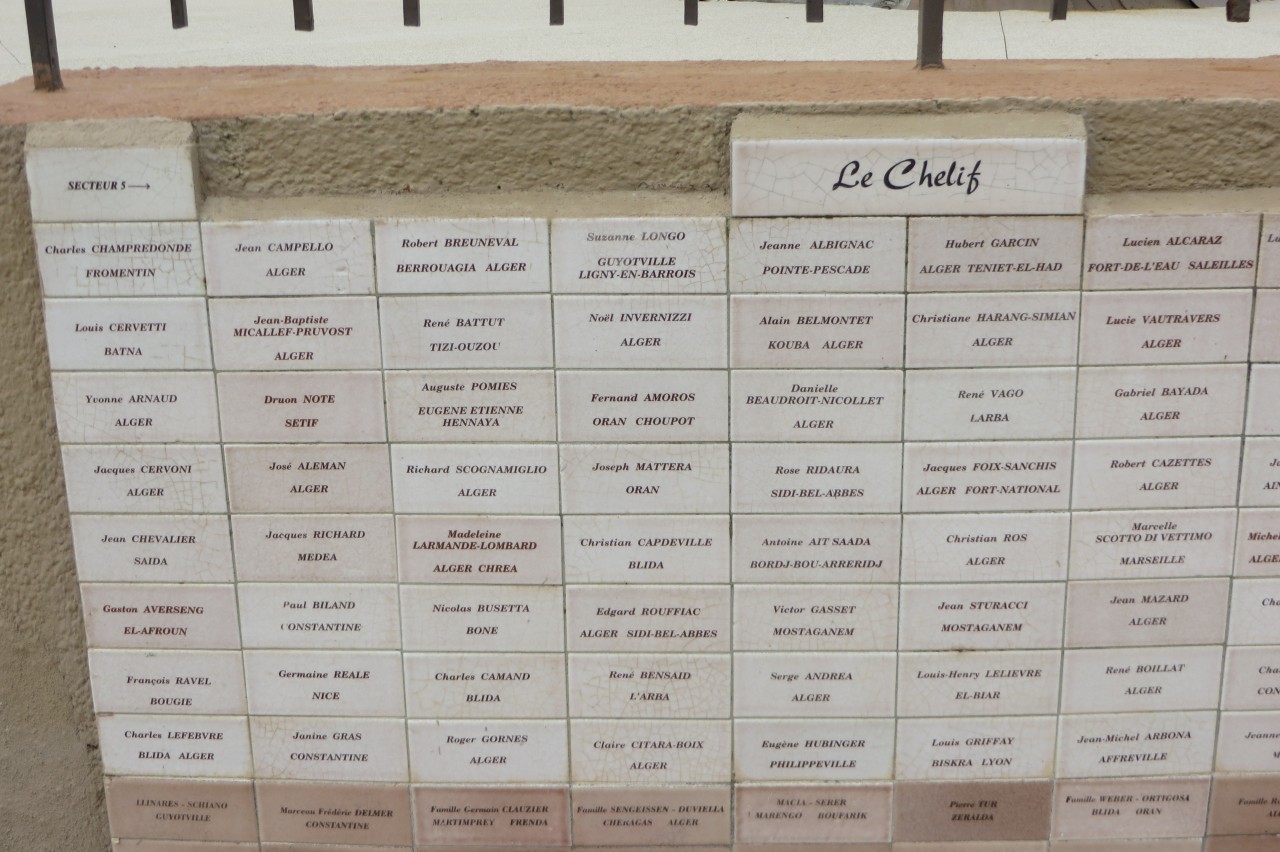 SECTEUR 5→
Le Chelif
Charles CHAMPREDONDE
FROMENTIN
Jean CAMPELLO
ALGER
Robert BREUNEVAL
BERROUAGIA ALGER
Suzanne LONGO
GUYOTVILLE
LIGNY-EN-BARROIS
Jeanne ALBIGNAC
POINTE-PESCADE
Hubert GARCIN
ALGER TENIET-EL-HAD
Lucien ALCARAZ
FORT-DE-L'EAU SALEILLES
Louis CERVETTI
BATNA
Jean-Baptiste
MICALLEF-PRUVOST
ALGER
René BATTUT
TIZI-OUZOU
Noël INVERNIZZI
ALGER
Alain BELMONTET
KOUBA ALGER
Christiane HARANG-SIMIAN
ALGER
Lucie VAUTRAVERS
ALGER
Yvonne ARNAUD
ALGER
Druon NOTE
SETIF
Auguste POMIES
EUGENE ETIENNE
HENNAYA
Fernand AMOROS
ORAN CHOUPOT
Danielle
BEAUDROIT-NICOLLET
ALGER
René VAGO
LARBA
Gabriel BAYADA
ALGER
Jacques CERVONI
ALGER
José ALEMAN
ALGER
Richard SCOGNAMIGLIO
ALGER
Joseph MATTERA
ORAN
Rose RIDAURA
SIDI-BEL-ABBES
Jacques FOIX-SANCHIS
ALGER FORT-NATIONAL
Robert CAZETTES
ALGER
Jean CHEVALIER
SAIDA
Jacques RICHARD
MEDEA
Madeleine
LARMANDE-LOMBARD
ALGER CHREA
Christian CAPDEVILLE
BLIDA
Antoine AIT SAADA
BORDJ-BOU-ARRERIDJ
Christian ROS
ALGER
Marcelle
SCOTTO DI VETTIMO
MARSEILLE
Gaston AVERSENG
EL-AFROUN
Paul BILAND
CONSTANTINE
Nicolas BUSETTA
BONE
Edgard ROUFFIAC
ALGER SIDI-BEL-ABBES
Victor GASSET
MOSTAGANEM
Jean STURACCI
MOSTAGANEM
Jean MAZARD
ALGER
François RAVEL
BOUGIE
Germaine REALE
NICE
Charles CAMAND
BLIDA
René BENSAID
L'ARBA
Serge ANDREA
ALGER
Louis-Henry LELIEVRE
EL-BIAR
René BOILLAT
ALGER
Charles LEFEBVRE
BLIDA ALGER
Janine GRAS
CONSTANTINE
Roger GORNES
ALGER
Claire CITARA-BOIX
ALGER
Eugène HUBINGER
PHILIPPEVILLE
Louis GRIFFAY
BISKRA LYON
Jean-Michel ARBONA
AFFREVILLE
LLINARES - SCHIANO
GUYOTVILLE
Marceau Frédéric DELMER
CONSTANTINE
Famille Germain CLAUZIER
MARTIMPREY FRENDA
Famille SENGEISSEN - DUVIELLA
CHERAGAS ALGER
MACIA - SERER
MARENGO BOUFARIK
Pierre TUR
ZERALDA
Famille WEBER - ORTIGOSA
BLIDA ORAN